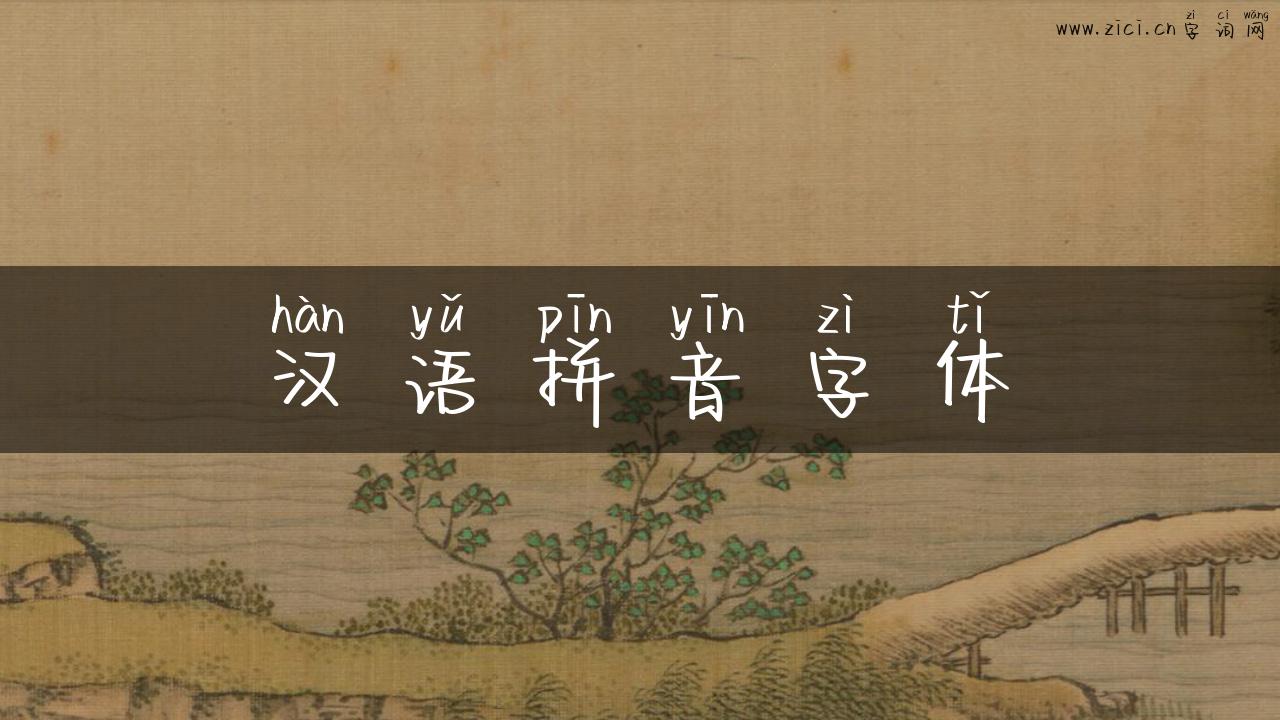 www.zici.cn 字词网
zì cí wǎng
hàn yǔ pīn yīn zì tǐ
汉语拼音字体